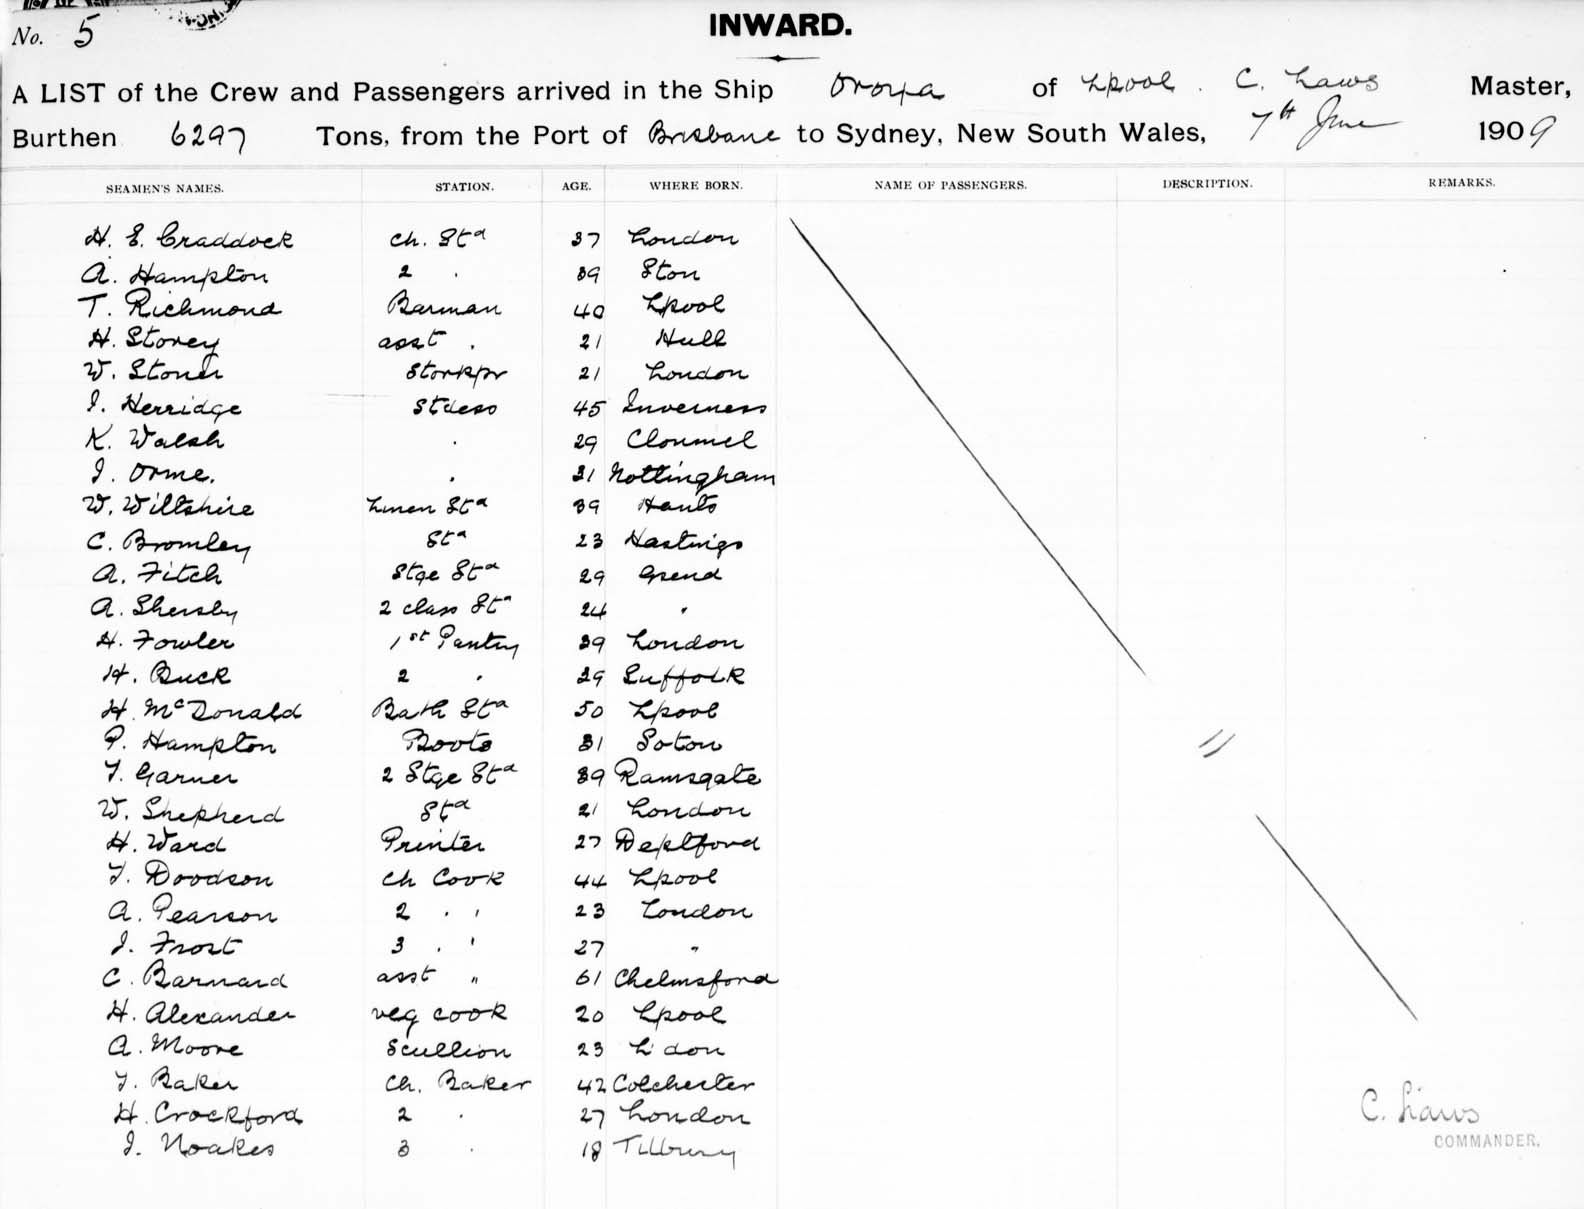 No. 5
INWARD.
A LIST of the Crew and Passengers arrived in the Ship Oroya of Lpool. C. Laws Master,
Burthen 6297 Tons, from the Port of Brisbane to Sydney, New South Wales, 7th June 1909
SEAMEN'S NAMES. STATION. AGE. WHERE BORN. NAME OF PASSENGERS. DESCRIPTION. REMARKS.
H. E. Craddock Ch. Std 37 London
A. Hampton 2 . 39 Ston
T. Richmond Barman 40 Lpool
H. Storey asst . 21 Hull
W. Stoner Storkpr 21 London
I. Herridge Stdess 45 Inverness
K. Walsh . 29 Clonmel
I. Orme. . 31 Nottingham
W. Wiltshire Linen Std 39 Hants
C. Bromley Std 23 Hastings
A. Fitch Stge Std 29 Gsend
A. Shersby 2 class Std 24 "
H. Fowler 1st Pantry 39 London
H. Buck 2 . 29 Suffolk
H. McDonald Bath Std 50 Lpool
P. Hampton Boots 31 Soton
F. Garner 2 Stge Std 39 Ramsgate
W. Shepherd Std 21 London
H. Ward Printer 27 Deptford
F. Doodson Ch Cook 44 Lpool
A. Pearson 2 . . 23 London
J. Frost 3 . . 27 "
C. Barnard asst " 61 Chelmsford
H. Alexander veg cook 20 Lpool
A. Moore Scullion 23 L'don
F. Baker Ch. Baker 42 Colchester
H. Crockford 2 . 27 London
J. Noakes 3 . 18 Tilbury
C. Laws
COMMANDER.